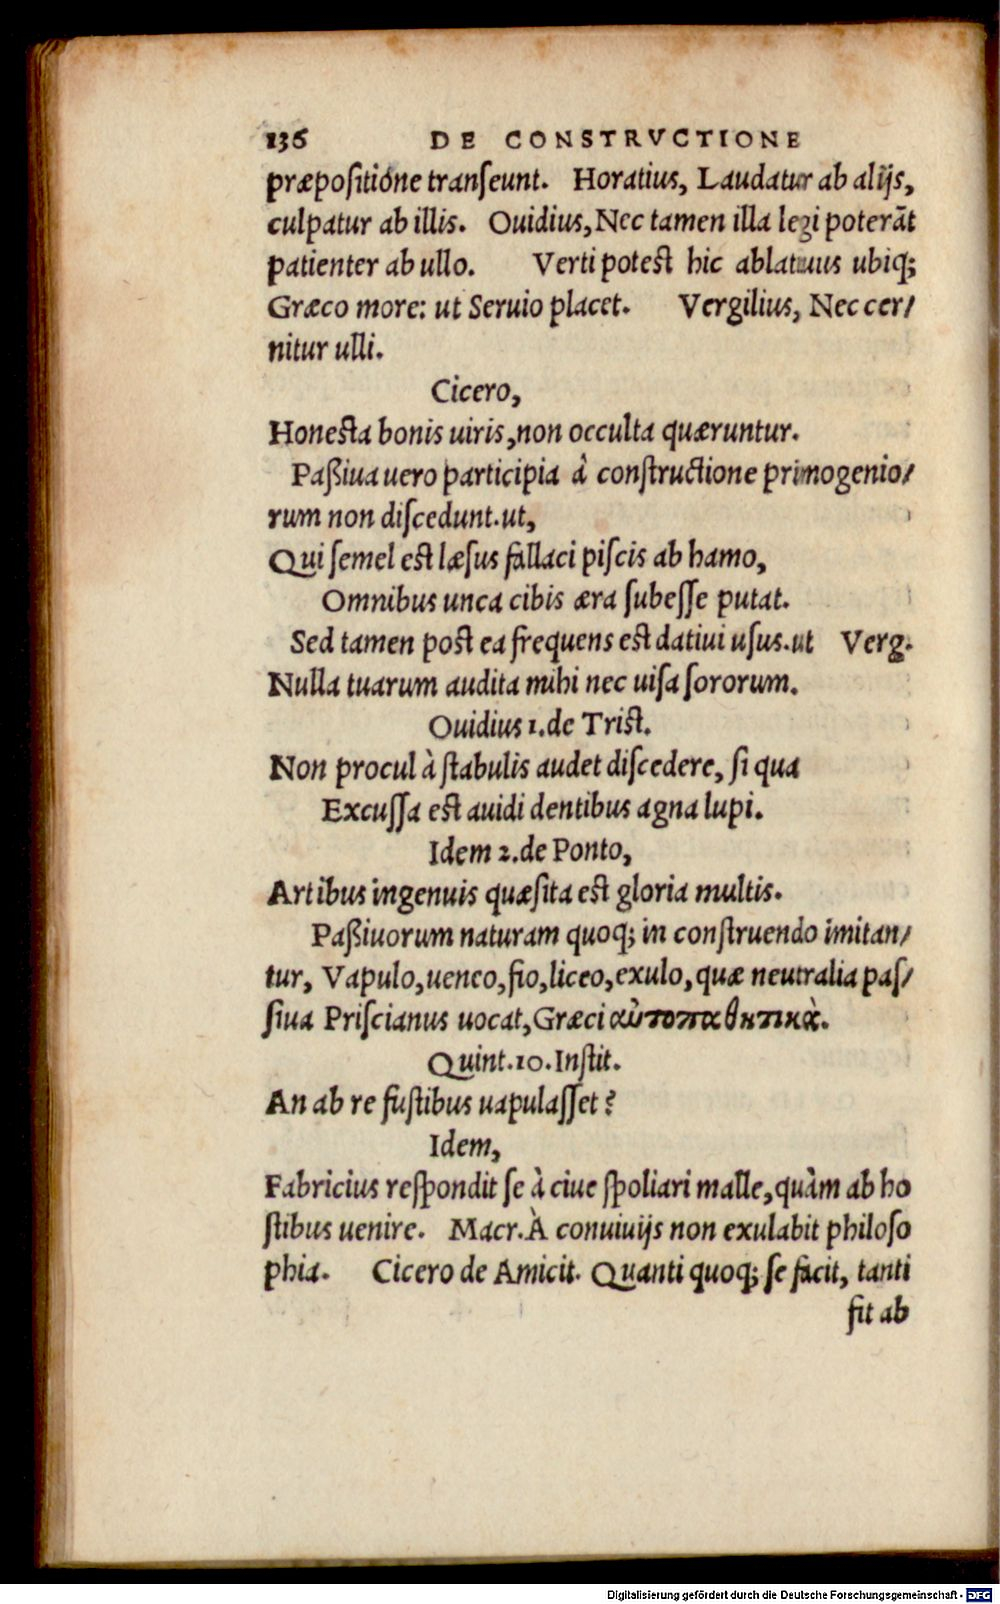 136 DE CONSTRVCTIONE
præpositióne transeunt. Horatius, Laudatur ab alijs,
culpatur ab illis. Ouidius, Nec tamen illa legi poterãt
patienter ab ullo. Verti potest hic ablatiuus ubiq;
Græco more: ut Seruio placet. Vergilius, Nec cer/
nitur ulli.
Cicero,
Honesta bonis uiris, non occulta quæruntur.
Paßiua uero participia à constructione primogenio/
rum non discedunt. ut,
Qui semel est læsus fallaci piscis ab hamo,
Omnibus unca cibis æra subesse putat.
Sed tamen post ea frequens est datiui usus. ut Verg.
Nulla tuarum audita mihi nec uisa sororum.
Ouidius 1. de Trist.
Non procul à stabulis audet discedere, si qua
Excussa est auidi dentibus agna lupi.
Idem 2. de Ponto,
Artibus ingenuis quæsita est gloria multis.
Paßiuorum naturam quoq; in construendo imitan/
tur, Vapulo, ueneo, fio, liceo, exulo, quæ neutralia pas/
siua Priscianus uocat, Græci αὐτοπαθητικὰ.
Quint. 10. Instit.
An ab re fustibus uapulasset?
Idem,
Fabricius respondit se à ciue spoliari malle, quàm ab ho
stibus uenire. Macr. À conuiuijs non exulabit philoso
phia. Cicero de Amicit. Quanti quoq; se facit, tanti
fit ab
Digitalisierung gefördert durch die Deutsche Forschungsgemeinschaft - DFG